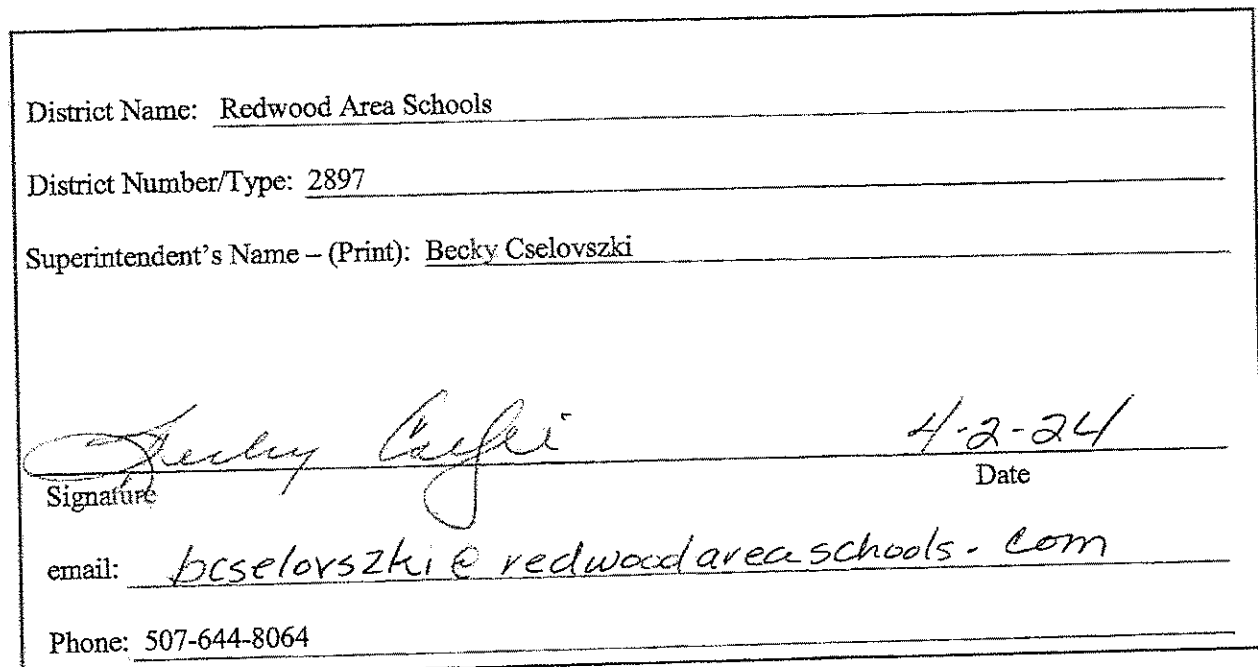 District Name: Redwood Area Schools
District Number/Type: 2897
Superintendent's Name – (Print): Becky Cselovszki
4-2-24
Signature Date
email: bcselovszki@redwoodareaschools.com
Phone: 507-644-8064